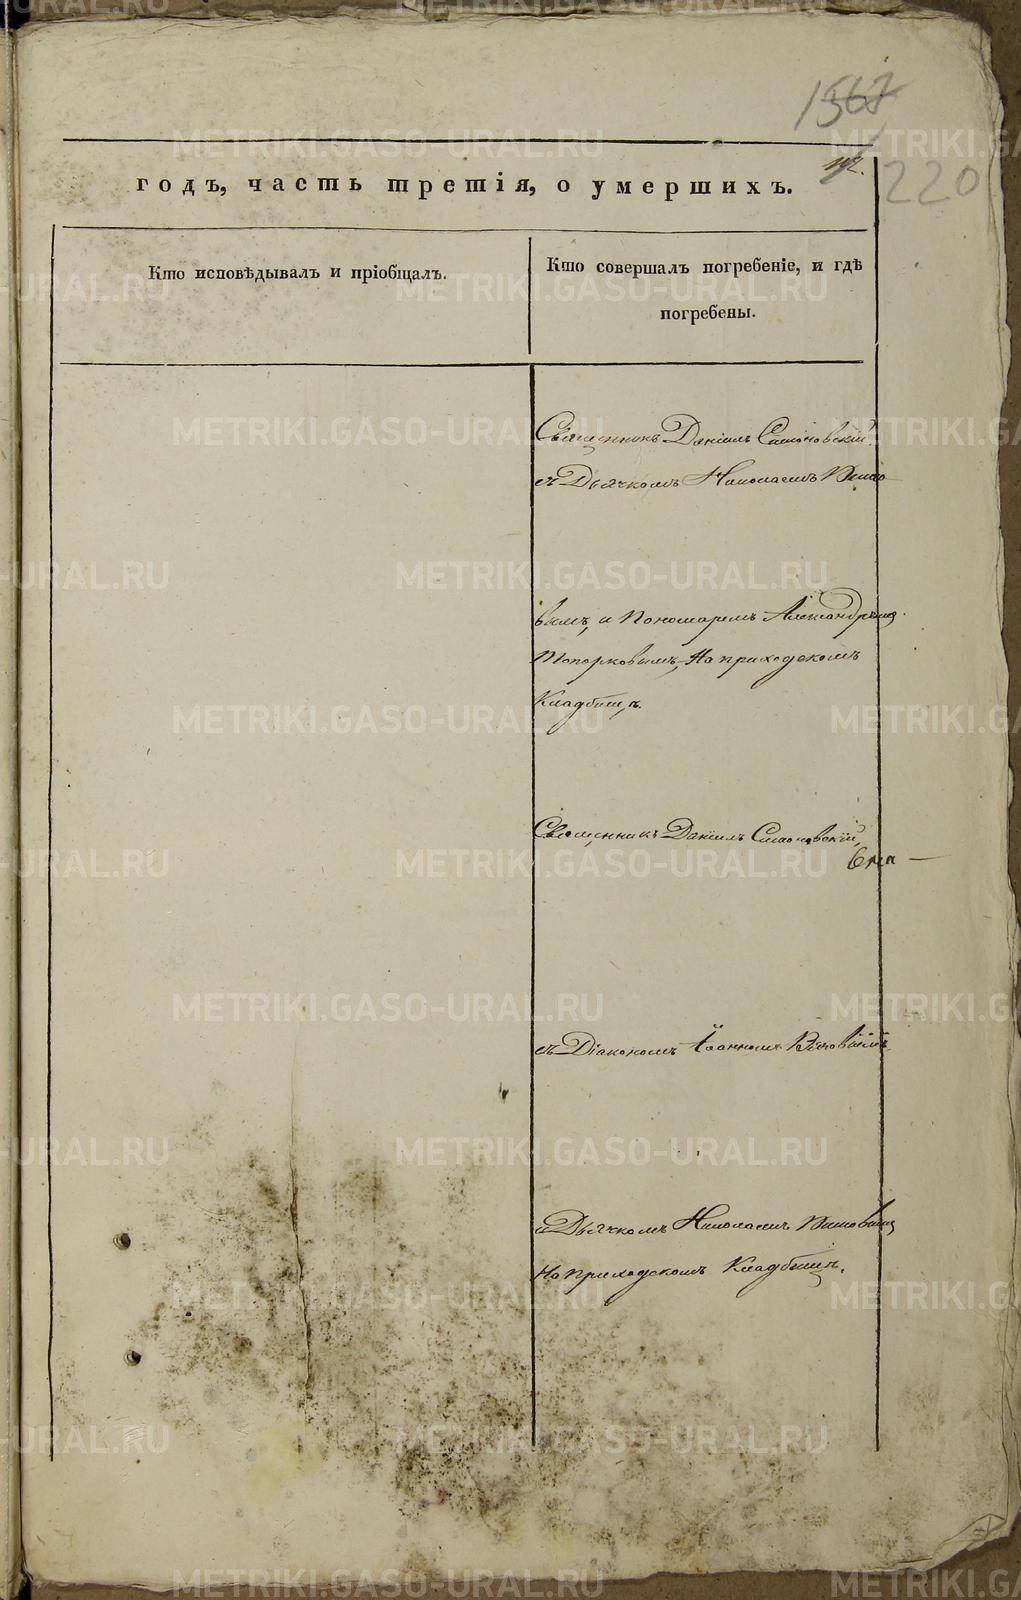 1567
220
годъ, часть третія, о умершихъ.
Кто исповѣдывалъ и пріобщалъ.
Кто совершалъ погребеніе, и гдѣ
погребены.
Священникъ Даніилъ
съ Дьячкомъ Николаемъ
вымъ, и Пономаремъ Александромъ
Топорковымъ, На приходскомъ
Кладбищѣ.
Священникъ Даніилъ
съ Діакономъ Іоанномъ
и Дьячкомъ Николаемъ
На приходскомъ Кладбищѣ.
METRIKI.GASO-URAL.RU